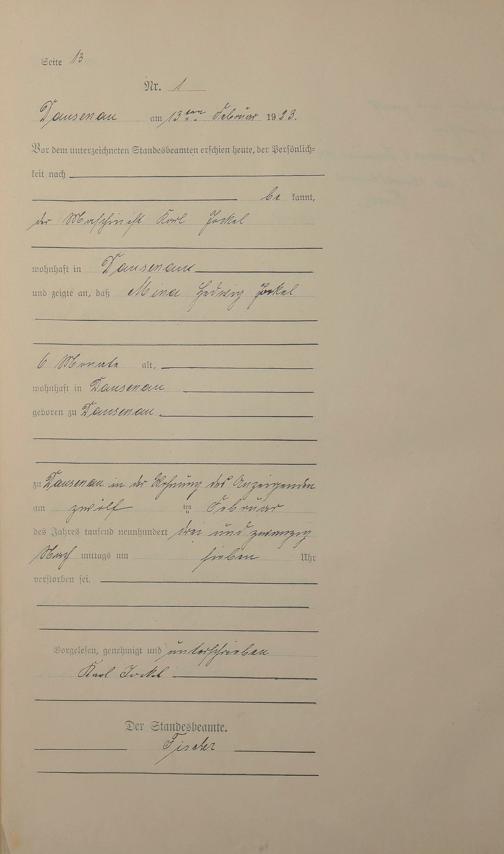 Seite 13
Nr. 1
Dausenau am 13ten Februar 1923.
Vor dem unterzeichneten Standesbeamten erschien heute, der Persönlich-
keit nach
be kannt,
der Maschinist Karl Jockel
wohnhaft in Dausenau
und zeigte an, daß Mina Hedwig Jockel
6 Monate alt,
wohnhaft in Dausenau
geboren zu Dausenau
zu Dausenau in der Wohnung des Anzeigenden
am zwölf ten Februar
des Jahres tausend neunhundert drei und zwanzig
Nach mittags um sieben Uhr
verstorben sei.
Vorgelesen, genehmigt und unterschrieben
Karl Jockel
Der Standesbeamte.
Fischer